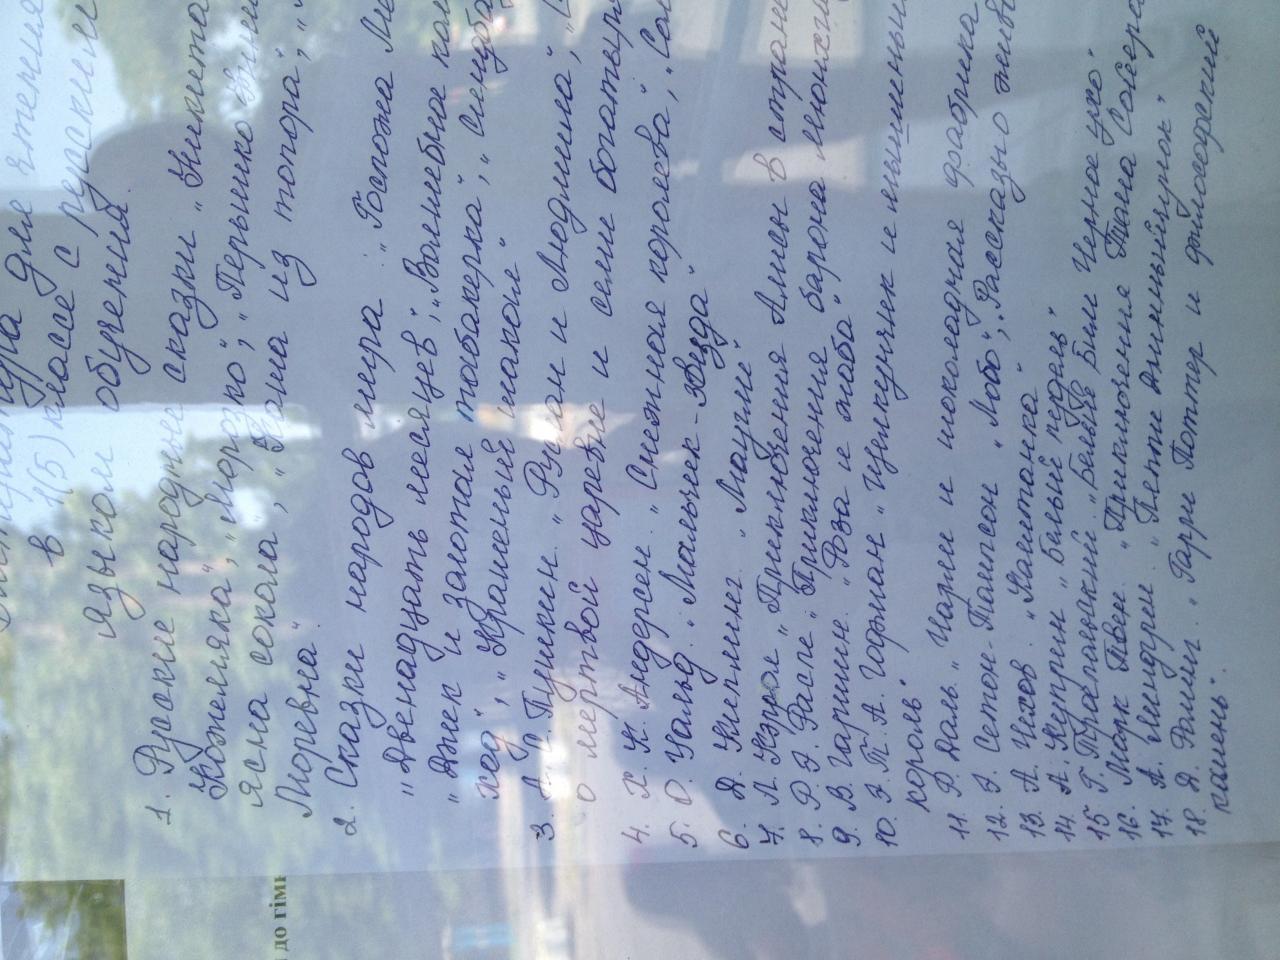 Литература для чтения
в 1(5) классе с русским
языком обучения.
1. Русские народные сказки „Никита
Кожемяка", „Морозко", „Перышко Фини
ясна сокола", „Каша из топора", „
Моревна".
2. Сказки народов мира. „Госпожа Ме
„Двенадцать месяцев", „Волшебное кол
„Джек и золотая табакерка", „Синдба
ход", „Хрустальный
3. А. С. Пушкин. „Руслан и Людмила", „
о мертвой царевне и семи богатыр
4. Х. К. Андерсен. „Снежная королева", „Сол
5. О. Уальд. „Мальчик-звезда"
6. Д. Киплинг. „Маугли"
7. Л. Кэрол „Приключения Алисы в стране
8. Р. Э. Распе „Приключение барона Мюнхга
9. В. Гаршин. „Роза и жаба"
10. Э. Т. А. Гофман „Щелкунчик и мышиный
король"
11. Р. Даль. „Чарли и шоколадная фабрика
12. Э. Сетон-Томпсон „Лобо", „Рассказы о живо
13. А. Чехов. „Каштанка"
14. А. Куприн „Белый пудель"
15. Г. Троепольский. „Белый Бим Черное ухо"
16. Марк Твен. „Приключения Тома Сойера
17. А. Линдгрен. „Пеппи Длинныйчулок".
18. Д. Ролинг. „Гарри Поттер и философский
камень".
до гімн